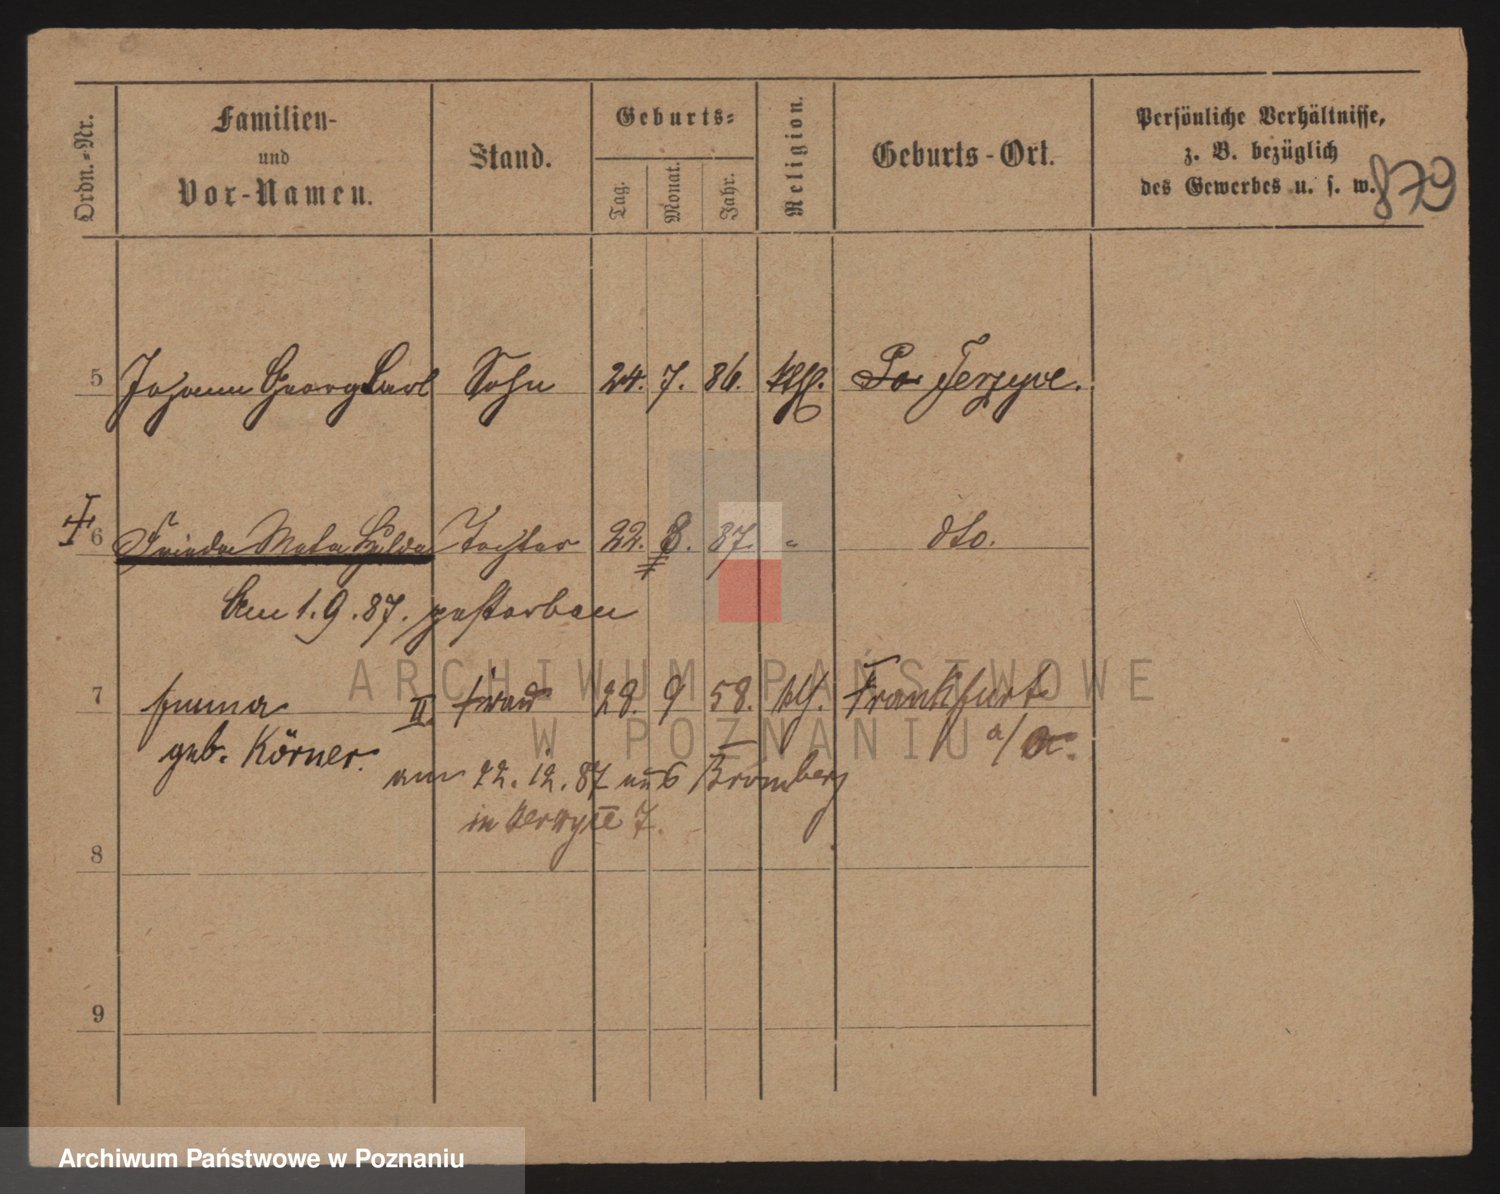 Ordn.-Nr.
Familien-
und
Vor-Namen.
Stand.
Geburts-
Tag.
Monat.
Jahr.
Religion.
Geburts-Ort.
Persönliche Verhältnisse,
z. B. bezüglich
des Gewerbes u. s. w.
879
5 Johann Georg Carl Sohn 24. 7. 86. kth. Jerzyce.
6 Frieda Meta Hylda Tochter 22. 8. 87. " dto.
Am 1.9.87. gestorben
7 Emma II. Frau 28. 9 58. kth. Frankfurt
geb. Körner. a/O.
am 22.12.87 aus Bromberg
in 7.
8
9
ARCHIWUM PAŃSTWOWE
W POZNANIU
Archiwum Państwowe w Poznaniu